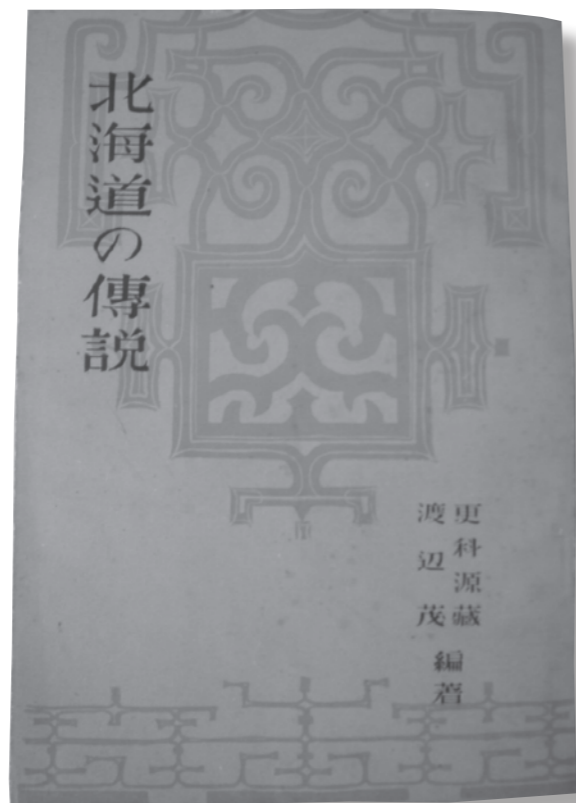 北海道の傳説
更科源藏
渡辺茂
編著